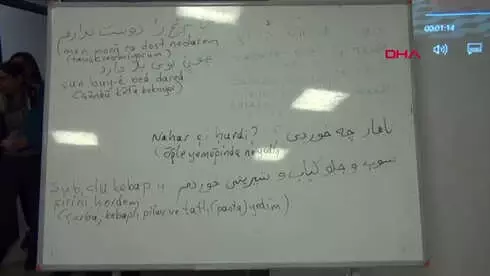 را دوست ندارم
(men morğ ra dost nedarem)
(tavuk sevmiyorum)
چون بوی بد دارد
çun buy-ê bed dared
(çünkü kötü kokuyor)
ناهار چه خوردی؟
Nahar çi hurdi?
(öğle yemeğinde ne yedin)
سوپ و چلو کباب و شیرینی خوردم
sub, çlu kebap u
şirini hordem
(çorba, kebaplı pilav ve tatlı (pasta) yedim)
00:01:14
DHA